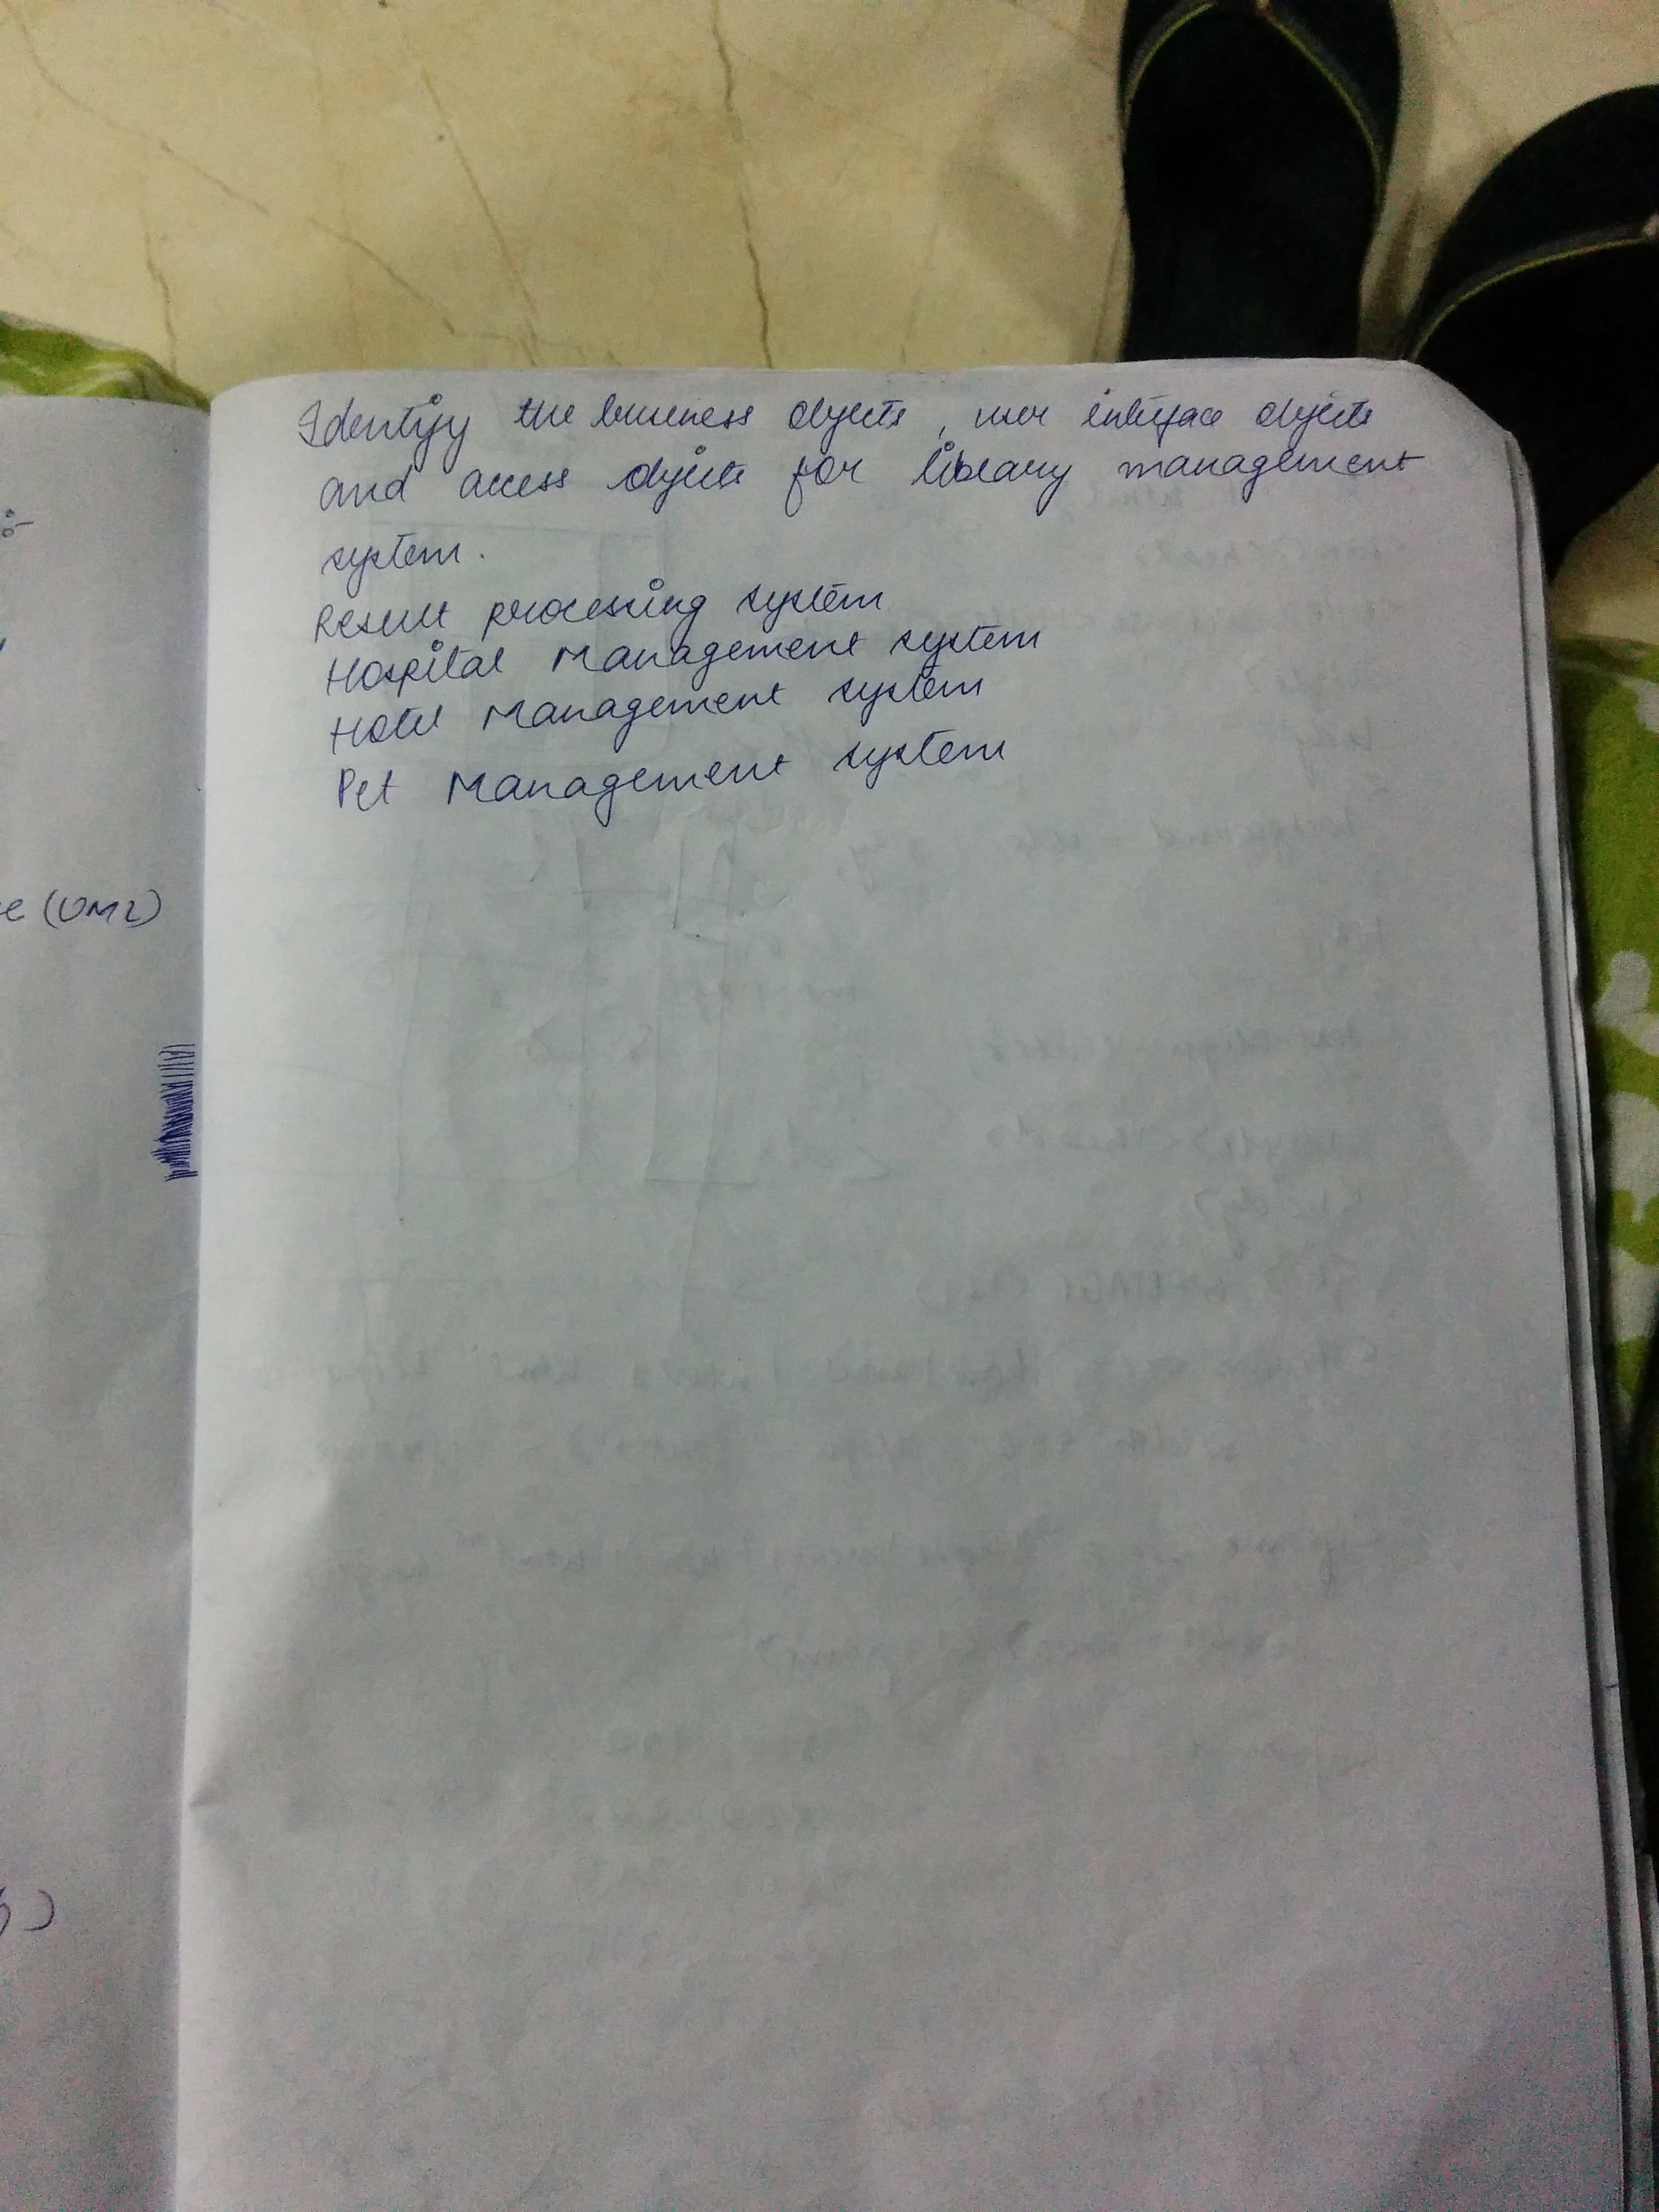 Identify the business objects, user interface objects
and access objects for library management
system.
Result processing system
Hospital Management system
Hotel Management system
Pet Management system
(UML)